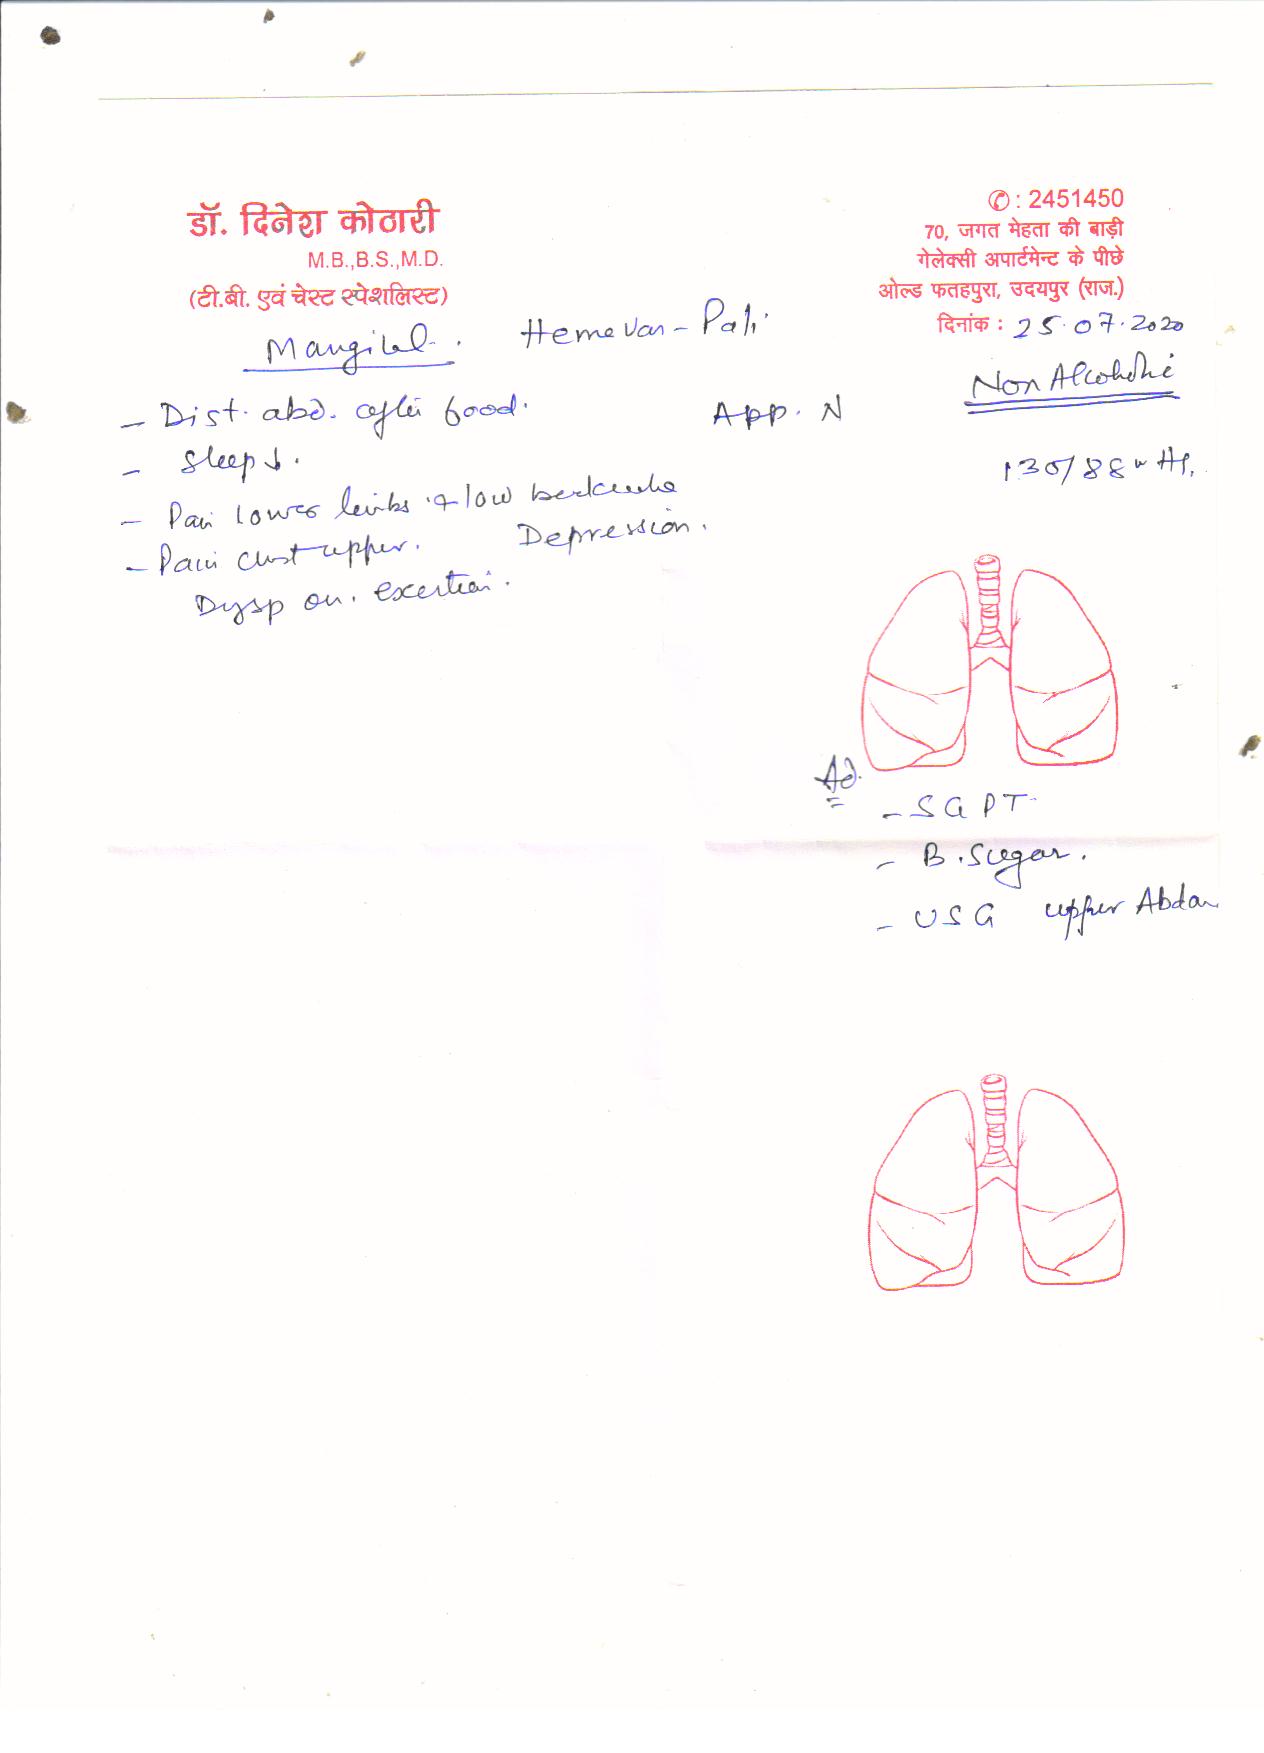 डॉ. दिनेश कोठारी
M.B.,B.S.,M.D.
(टी.बी. एवं चेस्ट स्पेशलिस्ट)
✆ : 2451450
70, जगत मेहता की बाड़ी
गेलेक्सी अपार्टमेन्ट के पीछे
ओल्ड फतहपुरा, उदयपुर (राज.)
दिनांक : 25.07.2020
Mangilal. Hemevan - Pali
Non Alcoholic
- Dist. abd. after food. App. N
- Sleep ↓. 130/88
- Pain lower limbs & low
- Pain chest upper. Depression.
Dysp on. exertion.
Ad.
- SGPT
- B. Sugar.
- USG upper Abdo